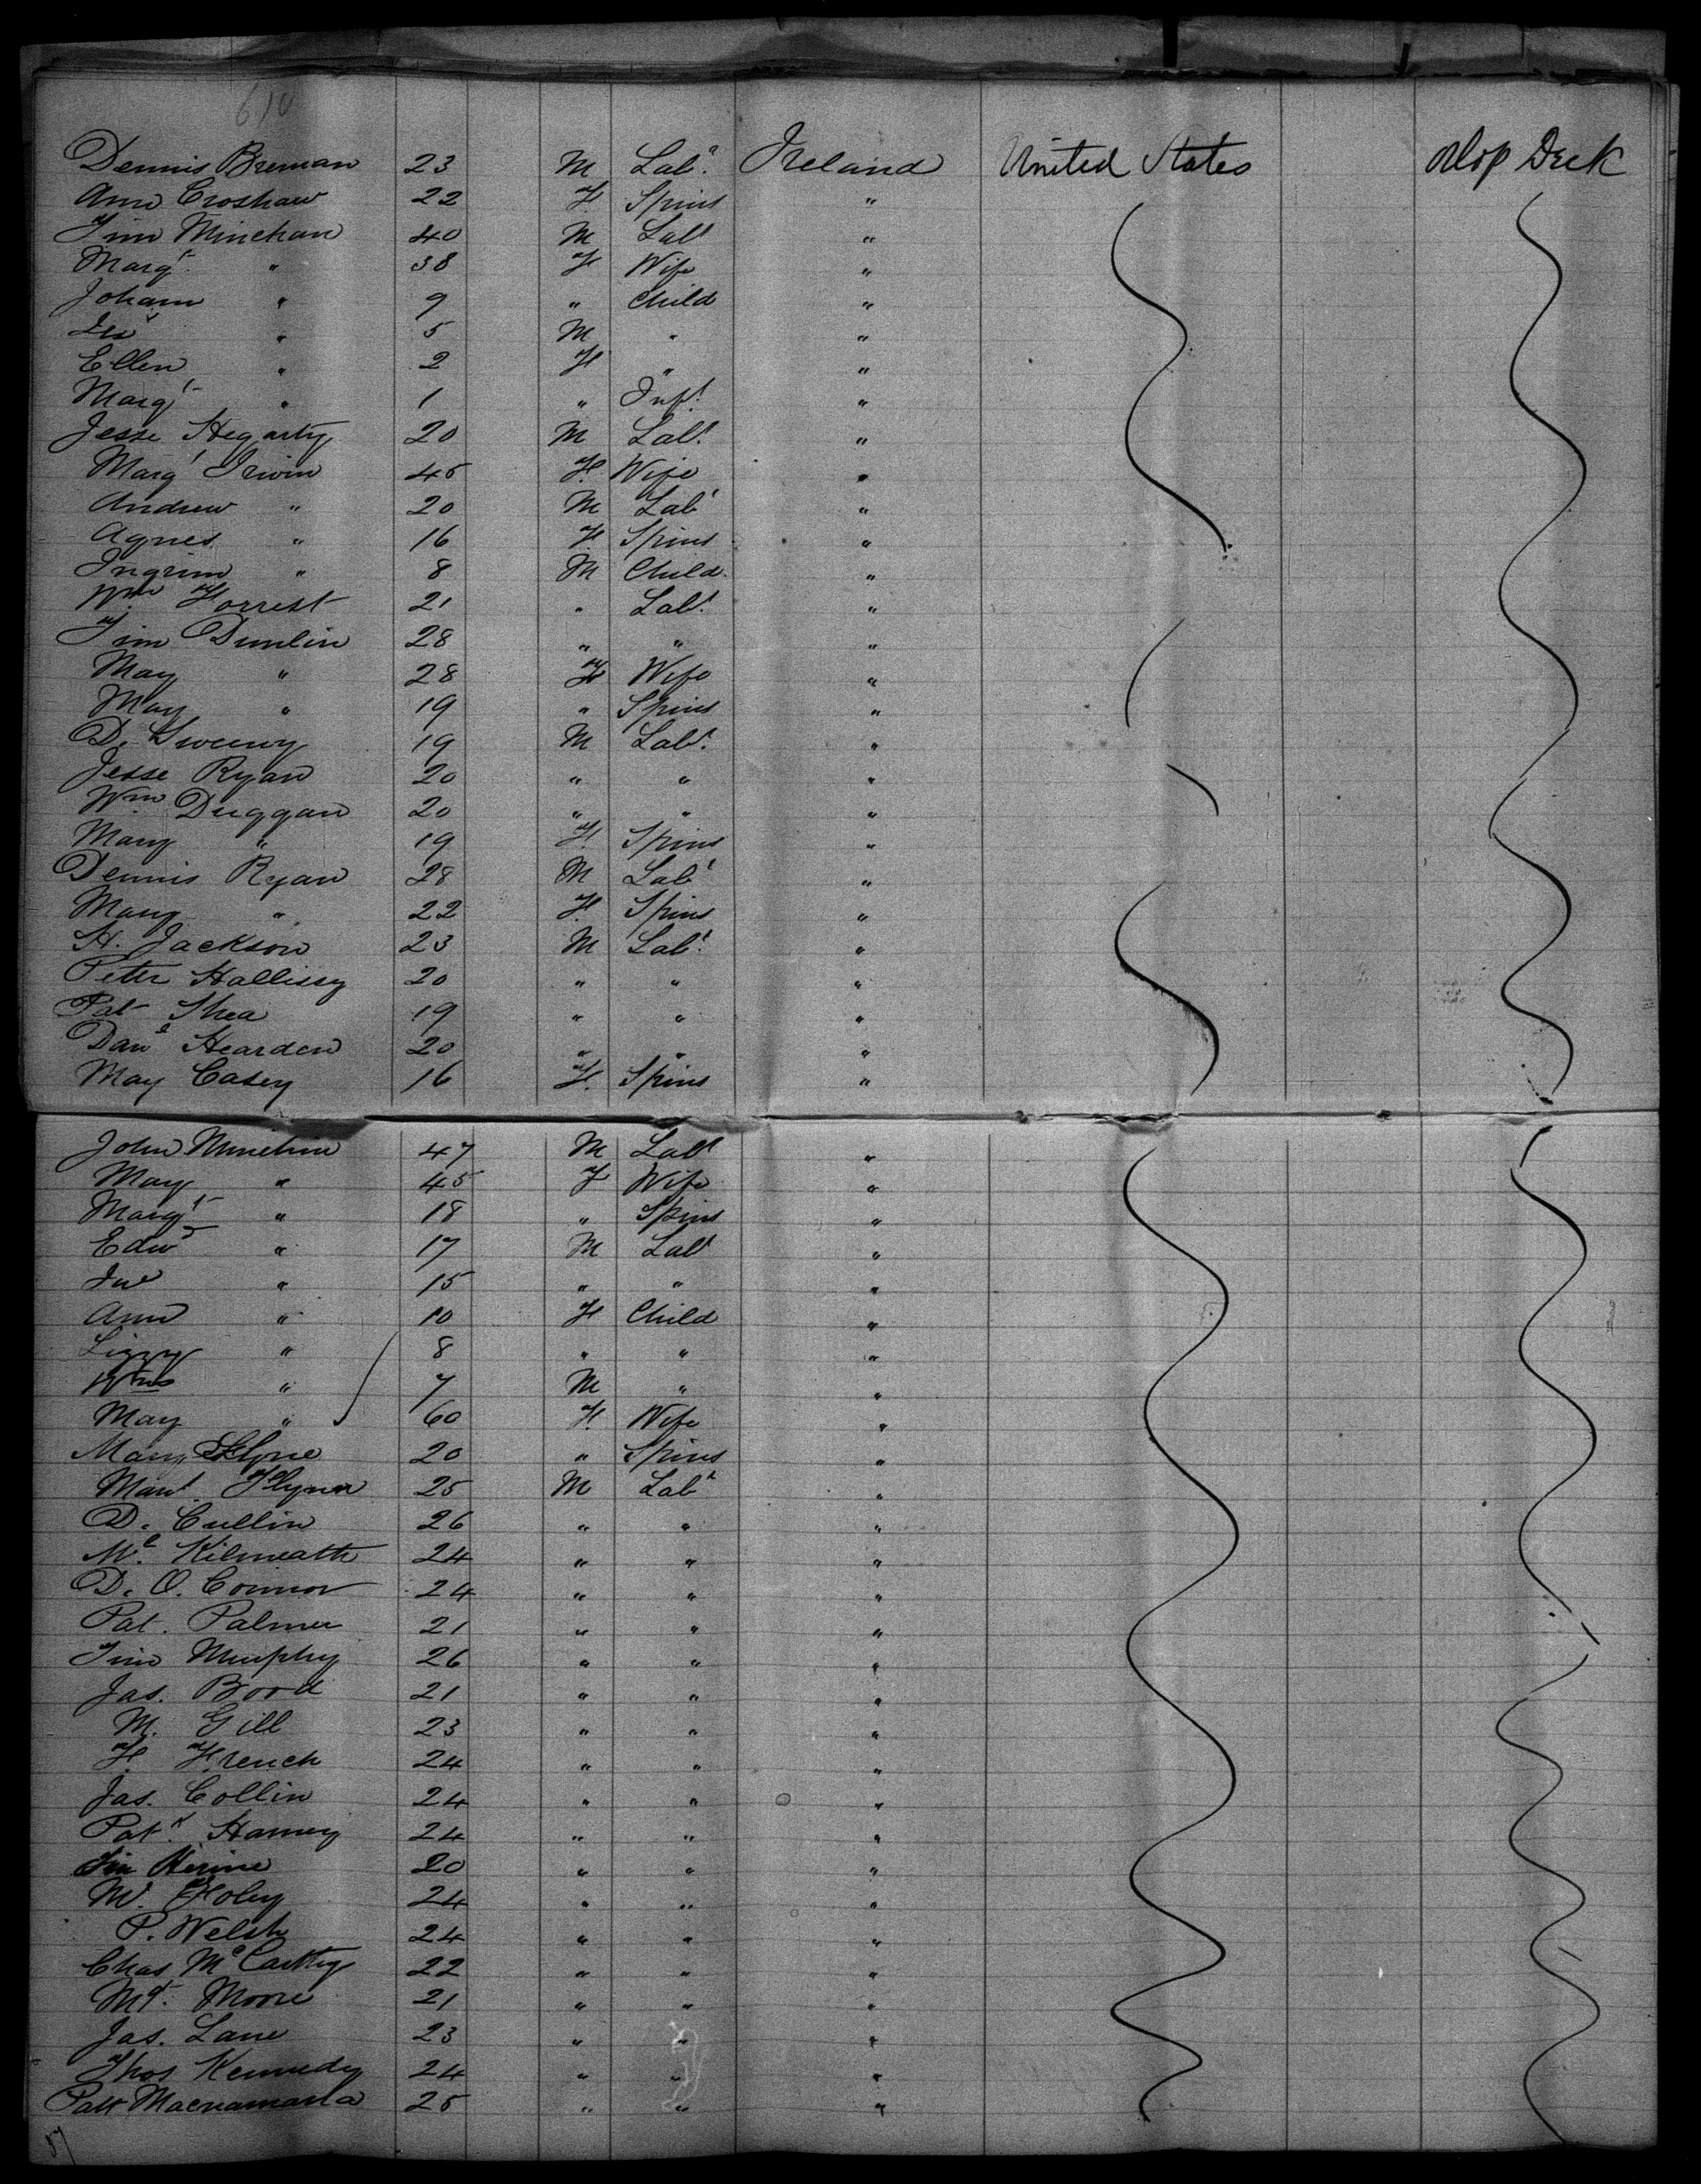 610
Dennis Brennan 23 M Labr Ireland United States Orlop Deck
Ann Croshaw 22 F. Spins "
Tim Minehan 40 M Labr "
Margt. " 38 F Wife "
Johann " 9 " Child "
" 5 M " "
Ellen " 2 F " "
Margt " 1 " Inft. "
Jesse Hegarty 20 M Labr. "
Margt Irwin 45 F. Wife "
Andrew " 20 M Labr "
Agnes " 16 F. Spins "
Ingrim " 8 M Child. "
Wm. Forrest 21 " Labr. "
Tim Dunlin 28 " " "
May " 28 F Wife "
May " 19 " Spins "
D. Sweeny 19 M Labr. "
Jesse Ryan 20 " " "
Wm. Duggan 20 " " "
Mary " 19 F. Spins "
Dennis Ryan 28 M Labr "
Mary " 22 F. Spins "
H. Jackson 23 M Labr. "
Peter Hallissy 20 " " "
Pat Shea 19 " " "
Danl Hearden 20 " " "
May Casey 16 F. Spins "
John Minehin 47 M Labr "
May " 45 F Wife "
Margt " 18 " Spins "
Edwd " 17 M Labr "
Jno " 15 " " "
Ann " 10 F Child "
Lizzy " 8 " " "
Wm " 7 M " "
May " 60 F. Wife "
Mary 20 " Spins "
Flynn 25 M Labr "
D. Cullin 26 " " "
Mc. Kilmeath 24 " " "
D. O. Connor 24 " " "
Pat. Palmer 21 " " "
Tim Murphy 26 " " "
Jas. Bood 21 " " "
M. Gill 23 " " "
F. French 24 " " "
Jas. Collin 24 " " "
Patk. Hamey 24 " " "
20 " " "
M. Foley 24 " " "
P. Welsh 24 " " "
Chas McCarthy 22 " " "
Mt. Moore 21 " " "
Jas. Lane 23 " " "
Thos Kennedy 24 " " "
Patt Macnamarra 25 " " "
57